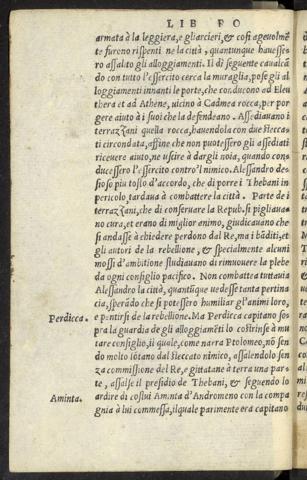 LIB PO
armata à la leggiera, e gli arcieri, & cosi ageuolmẽ
te furono rispenti ne la città, quantunque hauesse-
ro assalito gli alloggiamenti. Il dì seguente caualcã
do con tutto l'essercito cerca la muraglia, pose gli al
loggiamenti innanti le porte, che conduceno ad Eleu
thera et ad Athène, uicino à Cadmea rocca, per por
gere aiuto à i suoi che la defendeano. Assediauano i
terrazzani quella rocca, hauendola con due steccа-
ti circondata, affine che non puotessero gli assediati
riceuere aiuto, ne uscire à dargli noia, quando con-
ducessero l'essercito contro'l nimico. Alessandro de-
sioso piu tosto d'accordo, che di porre i Thebani in
pericolo, tardaua à combattere la città. Parte de i
terrazzani, che di conseruare la Repub. si pigliaua-
no cura, et erano di miglior animo, giudicauano che
si andasse à chiedere perdono dal Re, ma i bãditi, et
gli autori de la rebellione, & specialmente alcuni
mossi d'ambitione studiauano di rimuouere la plebe
da ogni consiglio pacifico. Non combattea tuttauia
Alessandro la città, quantũque uedesse tanta pertina
cia, sperãdo che si potessero humiliar gl'animi loro,
Perdicca. e pentirsi de la rebellione. Ma Perdicca capitano sos
pra la guardia de gli alloggiamẽti lo costrinse à mu
tare consiglio, il quale, come narra Ptolomeo, nõ sen
do molto lõtano dal steccato nimico, assalendolo sen
za commissione del Re, e gittatane à terra una par-
te, assalse il presidio de Thebani, & seguendo lo
Aminta. ardire di costui Aminta d'Andromeno con la compa
gnia à lui commessa, il quale parimente era capitano